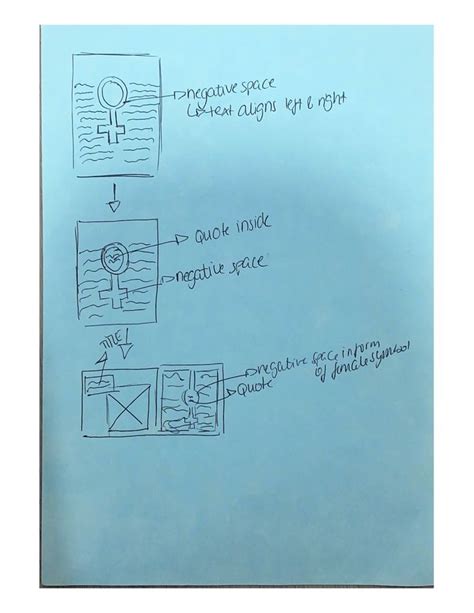 negative space
text aligns left & right
Quote inside
negative space
TITLE
negative space in form
of female symbol
Quote